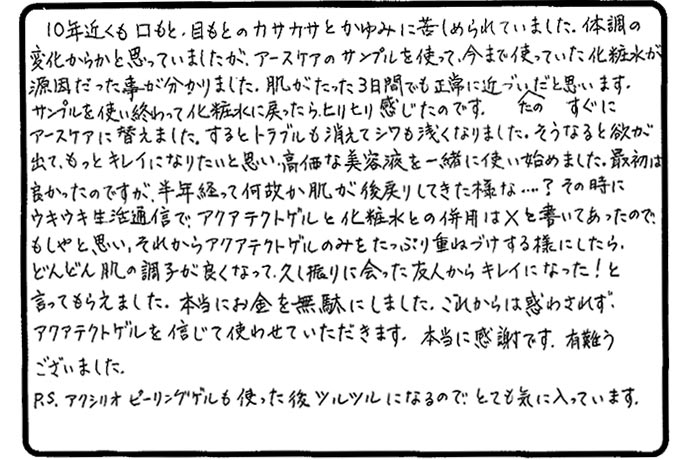 10年近くも口もと、目もとのカサカサとかゆみに苦しめられていました。体調の
変化からかと思っていましたが、アースケアのサンプルを使って、今まで使っていた化粧水が
源因だった事が分かりました。肌がたった3日間でも正常に近づいだと思います。
サンプルを使い終わって化粧水に戻ったら、ヒリヒリ感じたのです。たの すぐに
アースケアに替えました。するとトラブルも消えてシワも浅くなりました。そうなると欲が
出て、もっとキレイになりたいと思い、高価な美容液を一緒に使い始めました。最初は
良かったのですが、半年経って何故か肌が後戻りしてきた様な....？その時に
ウキウキ生活通信で、アクアテクトゲルと化粧水との併用は×と書いてあったので、
もしやと思い、それからアクアテクトゲルのみをたっぷり重ねづけする様にしたら、
どんどん肌の調子が良くなって、久し振りに会った友人からキレイになった！と
言ってもらえました。本当にお金を無駄にしました。これからは惑わされず、
アクアテクトゲルを信じて使わせていただきます。本当に感謝です。有難う
ございました。
P.S. アクシリオ ピーリングゲルも使った後ツルツルになるので、とても気に入っています。